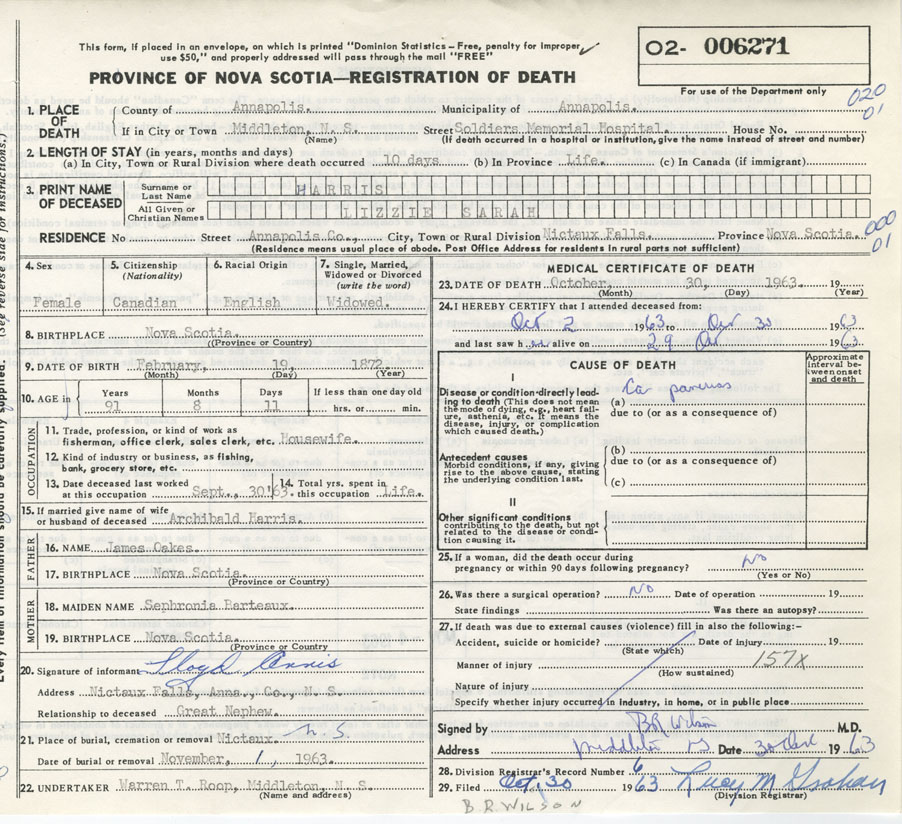 This form, if placed in an envelope, on which is printed "Dominion Statistics – Free, penalty for improper
use $50," and properly addressed will pass through the mail "FREE"
O2- 006271
PROVINCE OF NOVA SCOTIA—REGISTRATION OF DEATH
For use of the Department only
020
01
1. PLACE OF DEATH
County of Annapolis. Municipality of Annapolis.
If in City or Town Middleton, N. S. Street Soldiers Memorial Hospital. House No.
(Name) (If death occurred in a hospital or institution, give the name instead of street and number)
2. LENGTH OF STAY (in years, months and days)
(a) In City, Town or Rural Division where death occurred 10 days (b) In Province Life. (c) In Canada (if immigrant)
3. PRINT NAME OF DECEASED
Surname or Last Name HARRIS
All Given or Christian Names LIZZIE SARAH
000
01
RESIDENCE No Street Annapolis Co., City, Town or Rural Division Nictaux Falls. Province Nova Scotia.
(Residence means usual place of abode. Post Office Address for residents in rural parts not sufficient)
4. Sex Female
5. Citizenship (Nationality) Canadian
6. Racial Origin English
7. Single, Married, Widowed or Divorced (write the word) Widowed.
8. BIRTHPLACE Nova Scotia.
(Province or Country)
9. DATE OF BIRTH February, 19, 1872.
(Month) (Day) (Year)
10. AGE in Years Months Days If less than one day old
91 8 11 hrs. or min.
OCCUPATION
11. Trade, profession, or kind of work as
fisherman, office clerk, sales clerk, etc. Housewife.
12. Kind of industry or business, as fishing,
bank, grocery store, etc.
13. Date deceased last worked
at this occupation Sept., 30'63.
14. Total yrs. spent in
this occupation Life.
15. If married give name of wife
or husband of deceased Archibald Harris.
FATHER
16. NAME James Oakes.
17. BIRTHPLACE Nova Scotia.
(Province or Country)
MOTHER
18. MAIDEN NAME Sephronia Barteaux.
19. BIRTHPLACE Nova Scotia.
(Province or Country)
20. Signature of informant Lloyd Annis
Address Nictaux Falls, Anna., Co., N. S.
Relationship to deceased Great Nephew.
21. Place of burial, cremation or removal Nictaux. N.S.
Date of burial or removal November, 1, 1963.
22. UNDERTAKER Warren T. Roop, Middleton, N. S.
(Name and address)
MEDICAL CERTIFICATE OF DEATH
23. DATE OF DEATH October, 30, 1963. 19
(Month) (Day) (Year)
24. I HEREBY CERTIFY that I attended deceased from:
Oct 2 1963 to Oct 30 1963
and last saw her alive on 29 Oct 1963
CAUSE OF DEATH
Approximate interval between onset and death
I
Disease or condition directly leading to death (This does not mean the mode of dying, e.g., heart failure, asthenia, etc. It means the disease, injury, or complication which caused death.)
(a) Ca pancreas
due to (or as a consequence of)
Antecedent causes
Morbid conditions, if any, giving rise to the above cause, stating the underlying condition last.
(b)
due to (or as a consequence of)
(c)
II
Other significant conditions
contributing to the death, but not related to the disease or condition causing it.
25. If a woman, did the death occur during
pregnancy or within 90 days following pregnancy? No
(Yes or No)
26. Was there a surgical operation? No Date of operation 19
State findings Was there an autopsy?
27. If death was due to external causes (violence) fill in also the following:-
Accident, suicide or homicide? Date of injury 19
(State which)
Manner of injury 157X
(How sustained)
Nature of injury
Specify whether injury occurred in industry, in home, or in public place
Signed by B R Wilson M.D.
Address Middleton NS Date 30 Oct 1963
28. Division Registrar's Record Number 6
29. Filed Oct. 30 1963 Lucy M Graham
(Division Registrar)
B.R. WILSON
(See reverse side for instructions.)
Every item of information should be carefully supplied.